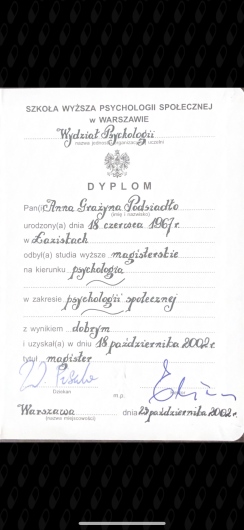 SZKOŁA WYŻSZA PSYCHOLOGII SPOŁECZNEJ
w WARSZAWIE
Wydział Psychologii
nazwa jednostki organizacyjnej uczelni
DYPLOM
Pan(i) Anna Grażyna Podsiadło
(imię i nazwisko)
urodzony(a) dnia 18 czerwca 1967 r.
w Łaziskach
odbył(a) studia wyższe magisterskie
na kierunku psychologia
w zakresie psychologii społecznej
z wynikiem dobrym
i uzyskał(a) w dniu 18 października 2002 r.
tytuł magister
Dziekan
m.p.
Warszawa dnia 23 października 2002 r.
(nazwa miejscowości)